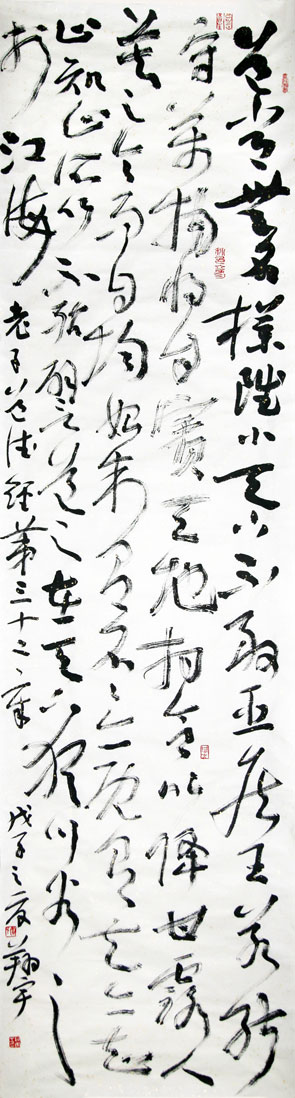 道常无名樸雖小天下不敢臣侯王若能
守萬物將自賓天地相合以降甘露人
莫之令而自均始制有名名亦既有夫亦將知
止知止所以不殆譬道之在天下猶川谷之
於江海
老子道德經第三十二章
戊子之夏翔宇